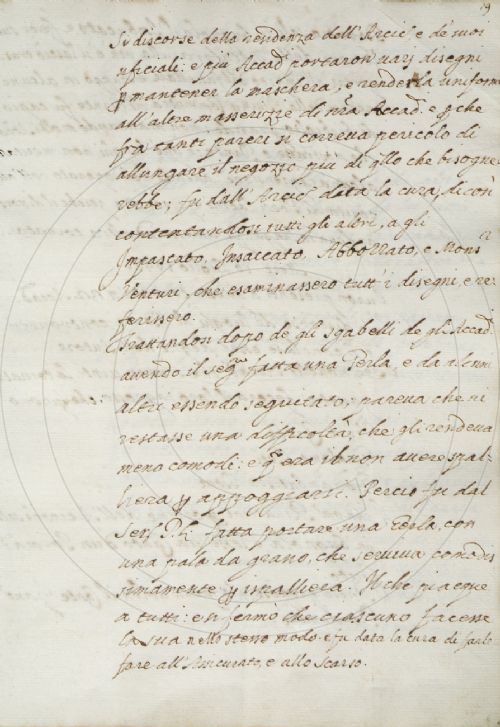 19
Si discorse della residenza dell'Arcic. e de suoi
uficiali: e più Accad. portaron varj disegni
ꝑ mantener la maschera, e renderla uniforme
all'altre masserizze di nra Accad. e ꝑ che
fra tanti pareri si correva pericolo di
allungare il negozio più di qllo che bisogne
rebbe; fu dall'Arcic. data la cura, di così
contentandosi tutti gli altri, a gli
Impastato, Insaccato, Abbozzato, e Mons.r
Venturi, che esaminassero tutt'i disegni, e re
ferissero.
Trattandosi dopo de gli sgabelli de gli Accad.
avendo il seg. fatta una Gerla, e da alcuni
altri essendo seguitato; pareva che vi
restasse una dificoltà, che gli rendeva
meno comodi: e q. era il non avere spal-
liera ꝑ appoggiarsi. Perciò fu dal
Ser. fatta portare una Gerla, con
una pala da grano, che serviva comodis
simamente ꝑ ispalliera. Il che piacque
a tutti: e si fermò che ciascuno facesse
la sua nello stesso modo e fu data la cura di farle
fare all'Assicurato, e allo Scarso.